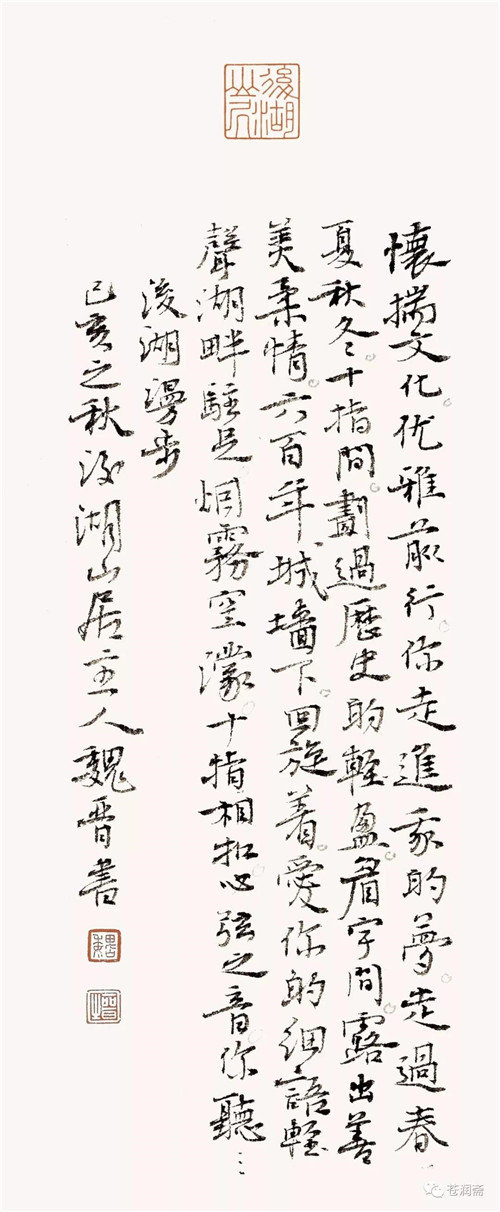 後湖山人
懷揣文化优雅前行你走進我的夢走過春
夏秋冬十指間劃過歷史的輕盈眉宇間露出善
美柔情六百年城墻下回旋着愛你的細語輕
聲湖畔駐足烟霧空濛十指相扣心弦之音你聽
後湖漫步
己亥之秋後湖山居主人魏晋書
魏
晋
苍润斋